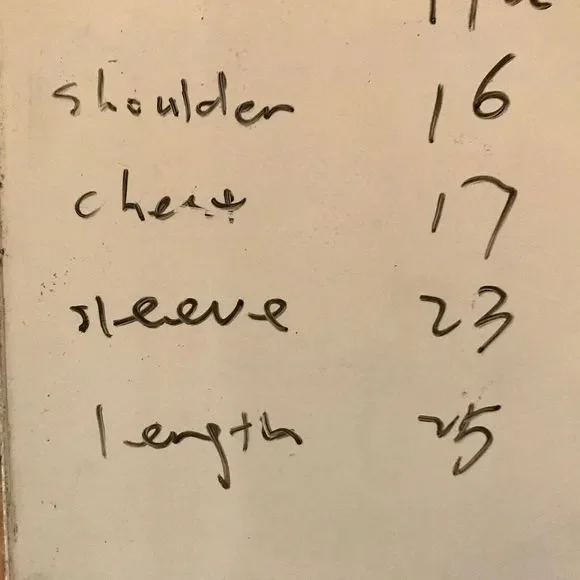 shoulder 16
chest 17
sleeve 23
length 25